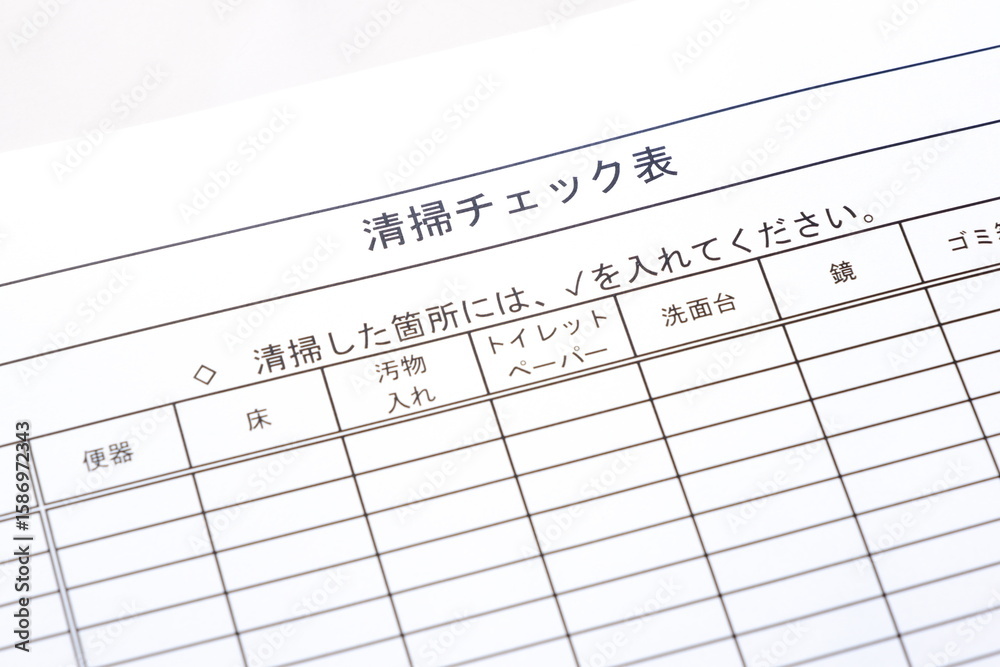 清掃チェック表
◇ 清掃した箇所には、✓を入れてください。
便器
床
汚物
入れ
トイレット
ペーパー
洗面台
鏡
ゴミ
Adobe Stock | #1586972343